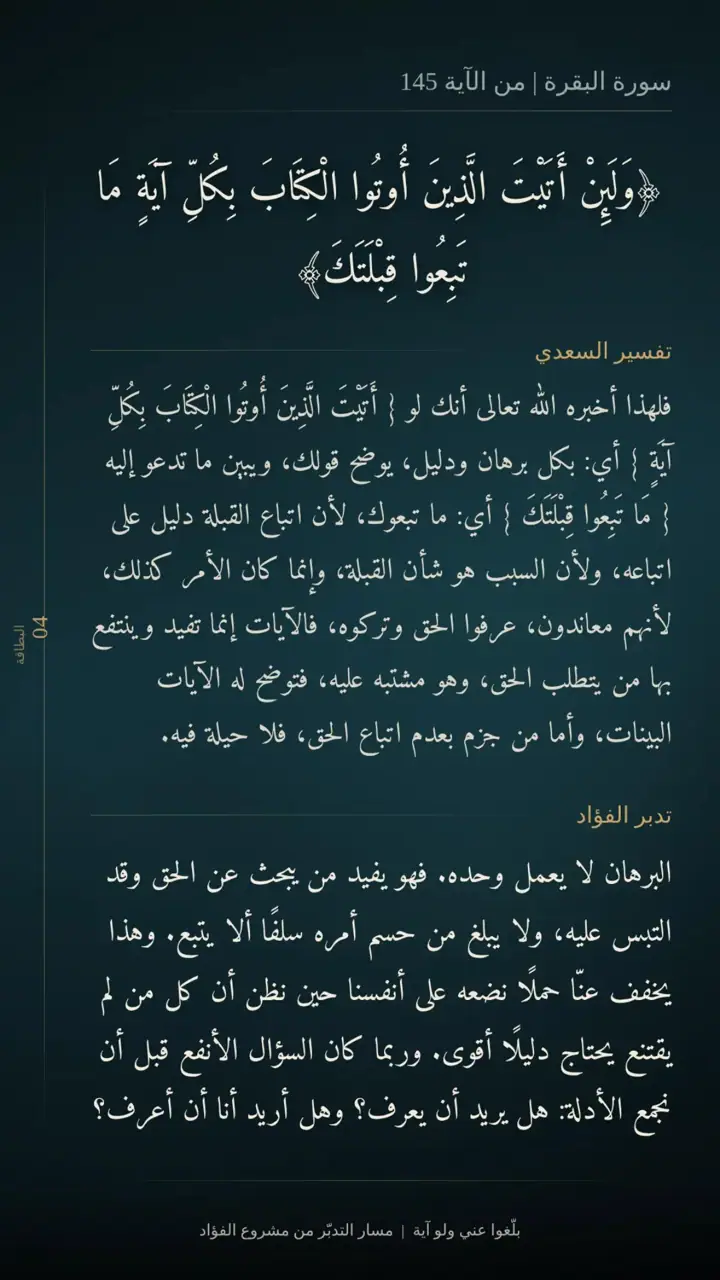 سورة البقرة | من الآية 145
﴿وَلَئِنْ أَتَيْتَ الَّذِينَ أُوتُوا الْكِتَابَ بِكُلِّ آيَةٍ مَا
تَبِعُوا قِبْلَتَكَ﴾
تفسير السعدي
فلهذا أخبره الله تعالى أنك لو { أَتَيْتَ الَّذِينَ أُوتُوا الْكِتَابَ بِكُلِّ
آيَةٍ } أي: بكل برهان ودليل، يوضح قولك، ويبين ما تدعو إليه
{ مَا تَبِعُوا قِبْلَتَكَ } أي: ما تبعوك، لأن اتباع القبلة دليل على
اتباعه، ولأن السبب هو شأن القبلة، وإنما كان الأمر كذلك،
لأنهم معاندون، عرفوا الحق وتركوه، فالآيات إنما تفيد وينتفع
بها من يتطلب الحق، وهو مشتبه عليه، فتوضح له الآيات
البينات، وأما من جزم بعدم اتباع الحق، فلا حيلة فيه.
البطاقة
04
تدبر الفؤاد
البرهان لا يعمل وحده. فهو يفيد من يبحث عن الحق وقد
التبس عليه، ولا يبلغ من حسم أمره سلفًا ألا يتبع. وهذا
يخفف عنّا حملًا نضعه على أنفسنا حين نظن أن كل من لم
يقتنع يحتاج دليلًا أقوى. وربما كان السؤال الأنفع قبل أن
نجمع الأدلة: هل يريد أن يعرف؟ وهل أريد أنا أن أعرف؟
بلّغوا عني ولو آية | مسار التدبّر من مشروع الفؤاد